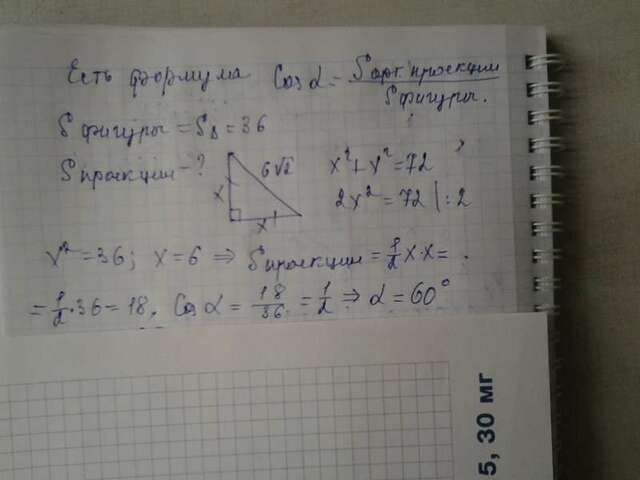 Есть формула Cos α = S орт. проекции / S фигуры.
S фигуры = S Δ = 36
S проекции - ?
x
6√2
x
x² + x² = 72
2x² = 72 | : 2
x² = 36; x = 6 ⇒ S проекции = 1/2 x·x =
= 1/2 · 36 = 18. Cos α = 18/36 = 1/2 ⇒ α = 60°
5, 30 мг